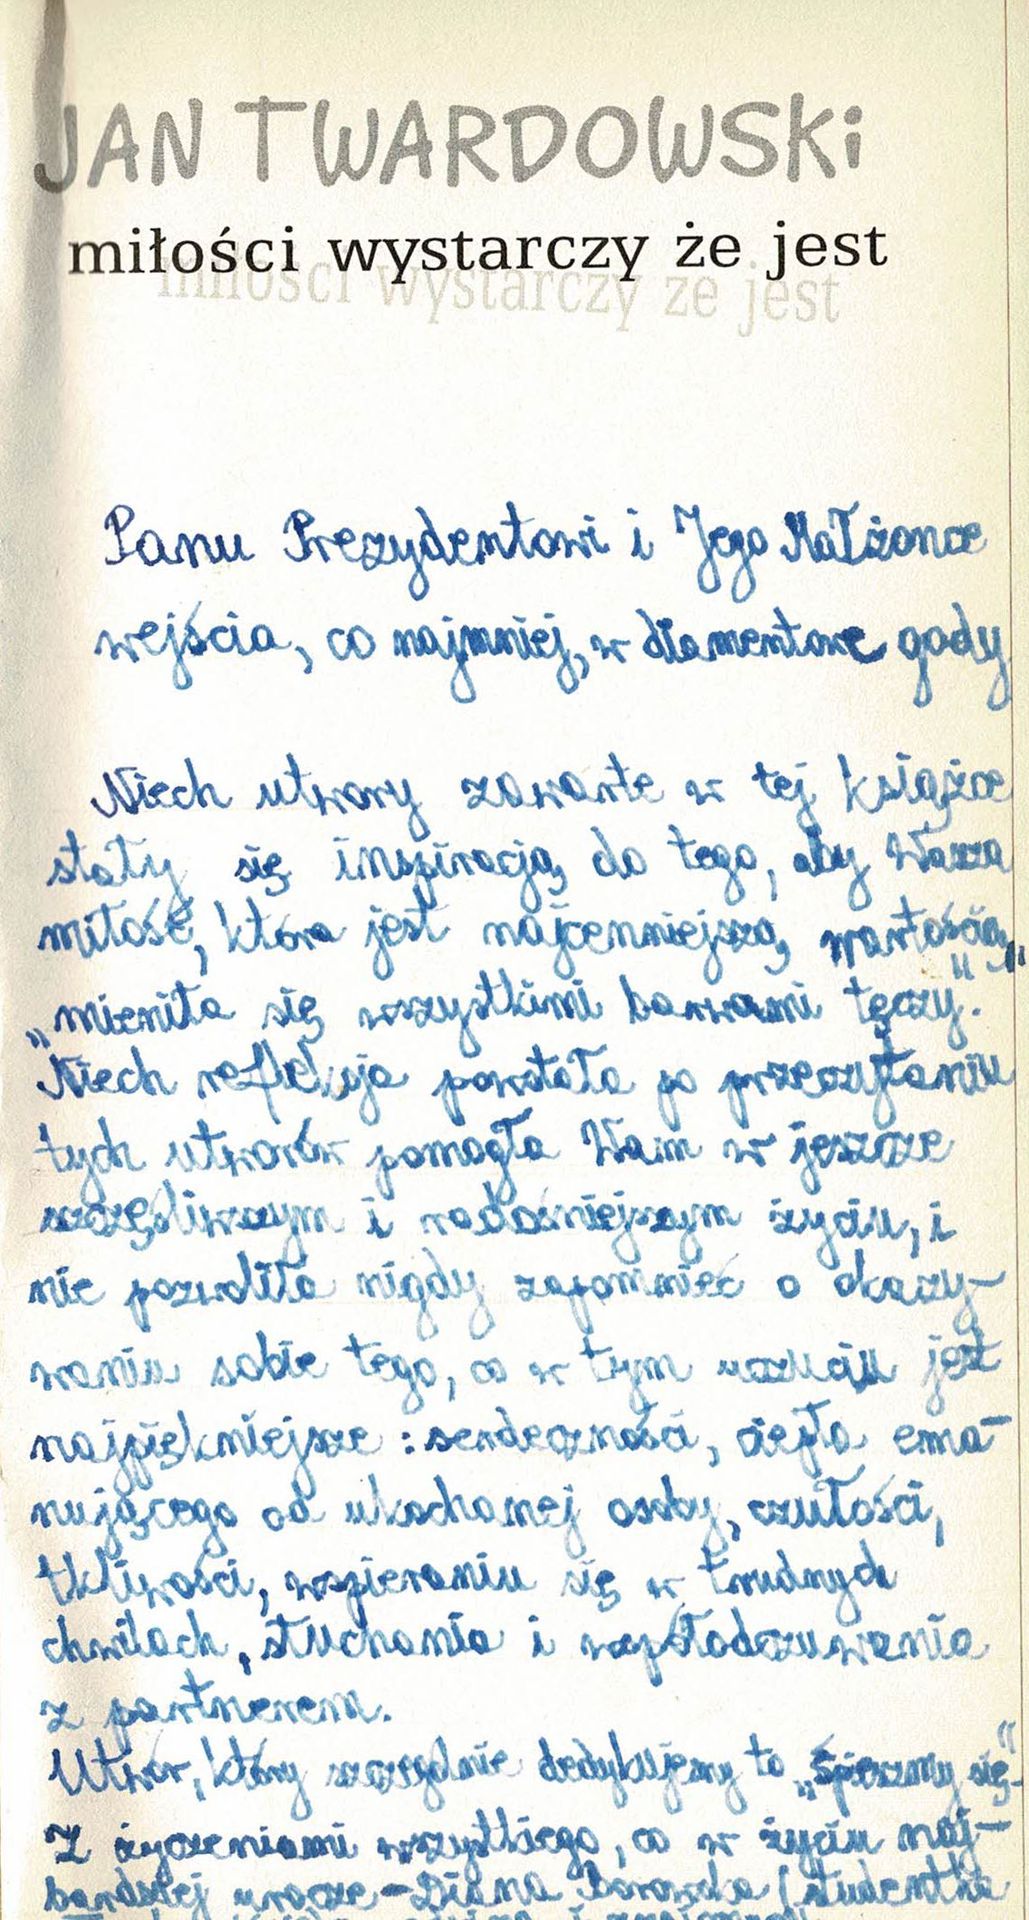 JAN TWARDOWSKI
miłości wystarczy że jest
miłości wystarczy że jest
Panu Prezydentowi i Jego Małżonce
wejścia, co najmniej, w diamentowe gody
Niech utwory zawarte w tej książce
stały się inspiracją do tego, aby Wasza
miłość, która jest najcenniejszą wartością,
„mieniła się wszystkimi barwami tęczy".
Niech refleksja powstała po przeczytaniu
tych utworów pomogła Wam w jeszcze
szczęśliwszym i radośniejszym życiu, i
nie pozwoliła nigdy zapomnieć o okazy-
waniu sobie tego, co w tym uczuciu jest
najpiękniejsze: serdeczności, ciepła ema-
nującego od ukochanej osoby, czułości,
tkliwości, wspieraniu się w trudnych
chwilach, słuchania i współodczuwania
z partnerem.
Utwór, który szczególnie dedykujemy to „Śpieszmy się"
Z życzeniami wszystkiego, co w życiu naj-
bardziej urocze - Diana Borowska (studentka